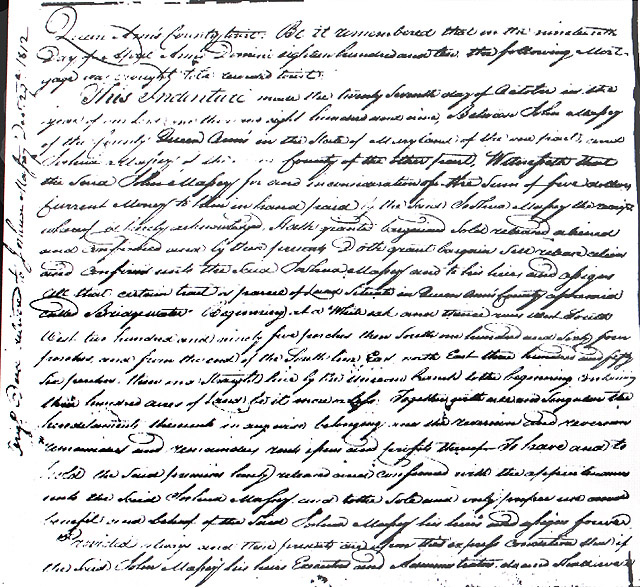 Queen Ann's County Court. Be it remembered that on the nineteenth
Day of April Anno Domini eighteen hundred and ten the following Mort-
gage was brought to be record to wit.
This Indenture made the twenty Seventh day of October in the
year of our Lord one thousand eight hundred and nine, Between John Massey
of the County Queen Ann's in the State of Maryland of the one part, and
Joshua Massey of the same County of the other part, Witnesseth that
the Said John Massey for and in consideration of the Sum of five dollars
Current Money to him in hand paid by the Said Joshua Massey the receipt
whereof is hereby acknowledge. Hath granted bargained Sold released aliened
and confirmed and by these presents Doth grant bargain Sell release alien
and confirm unto the Said Joshua Massey and to his heirs and assigns
All that certain tract or parcel of Land Situate in Queen Ann's County aforesaid
called Bridgewater Beginning at a White oak and thence runs West South
West two hundred and ninety five perches then South one hundred and Sixty four
perches, and from the end of the South line East north East three hundred and fifty
Six perches. then on a Straight line by the Unicorn branch to the beginning containing
three hundred acres of Land be it more or less. Together with all and Singular the
hereditaments thereunto in anywise belonging and the reversion and reversions
remainder and remainders rents issues and profits thereof To have and to
hold the Said premises hereby released and confirmed with the appurtenances
unto the Said Joshua Massey and to the Sole and only proper use and
benefit and behoof of the Said Joshua Massey his heirs and assigns forever
Provided always and these presents are upon the express Condition that if
the Said John Massey his heirs Executors and Administrators do and Shall well
delivered to Joshua Massey 1812